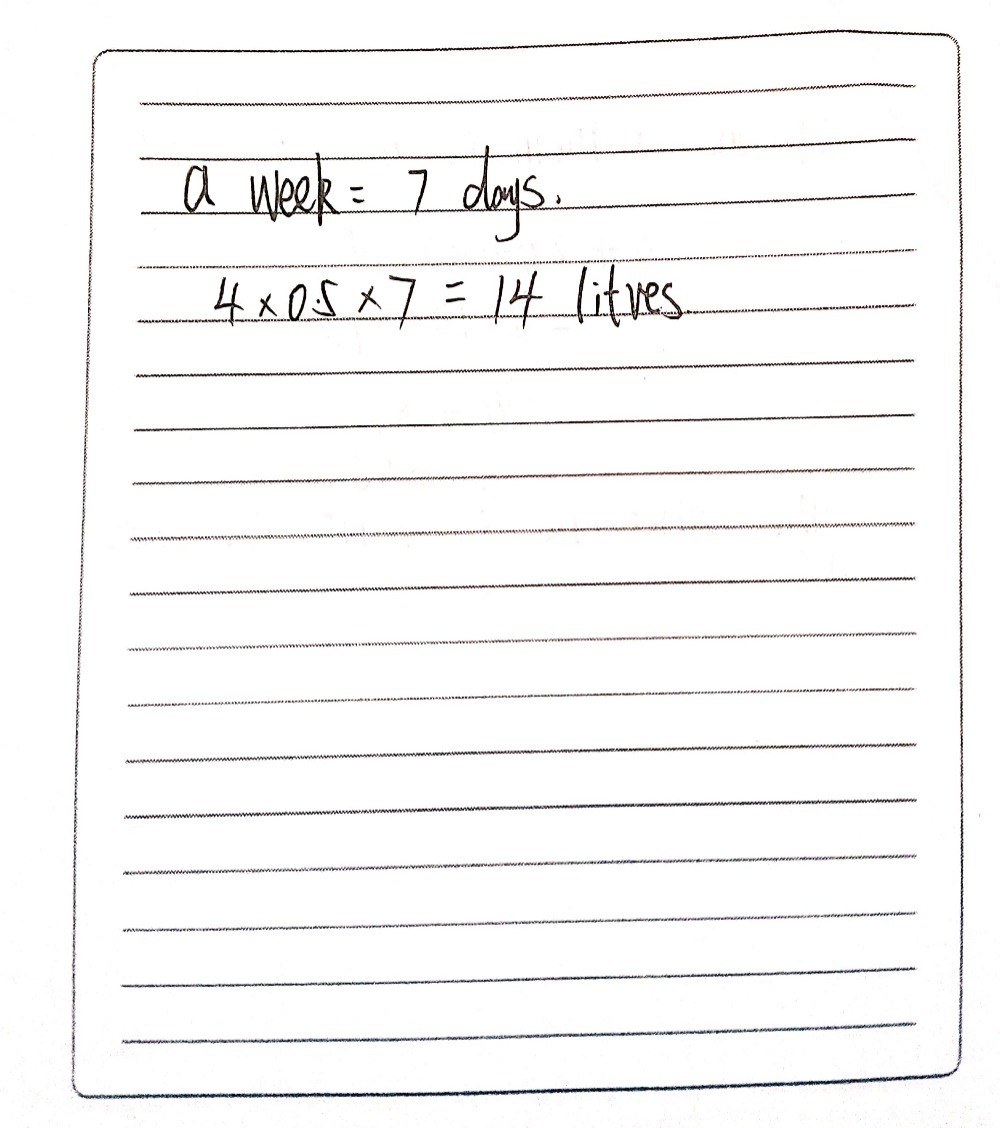 a week = 7 days.
4 × 0.5 × 7 = 14 litres